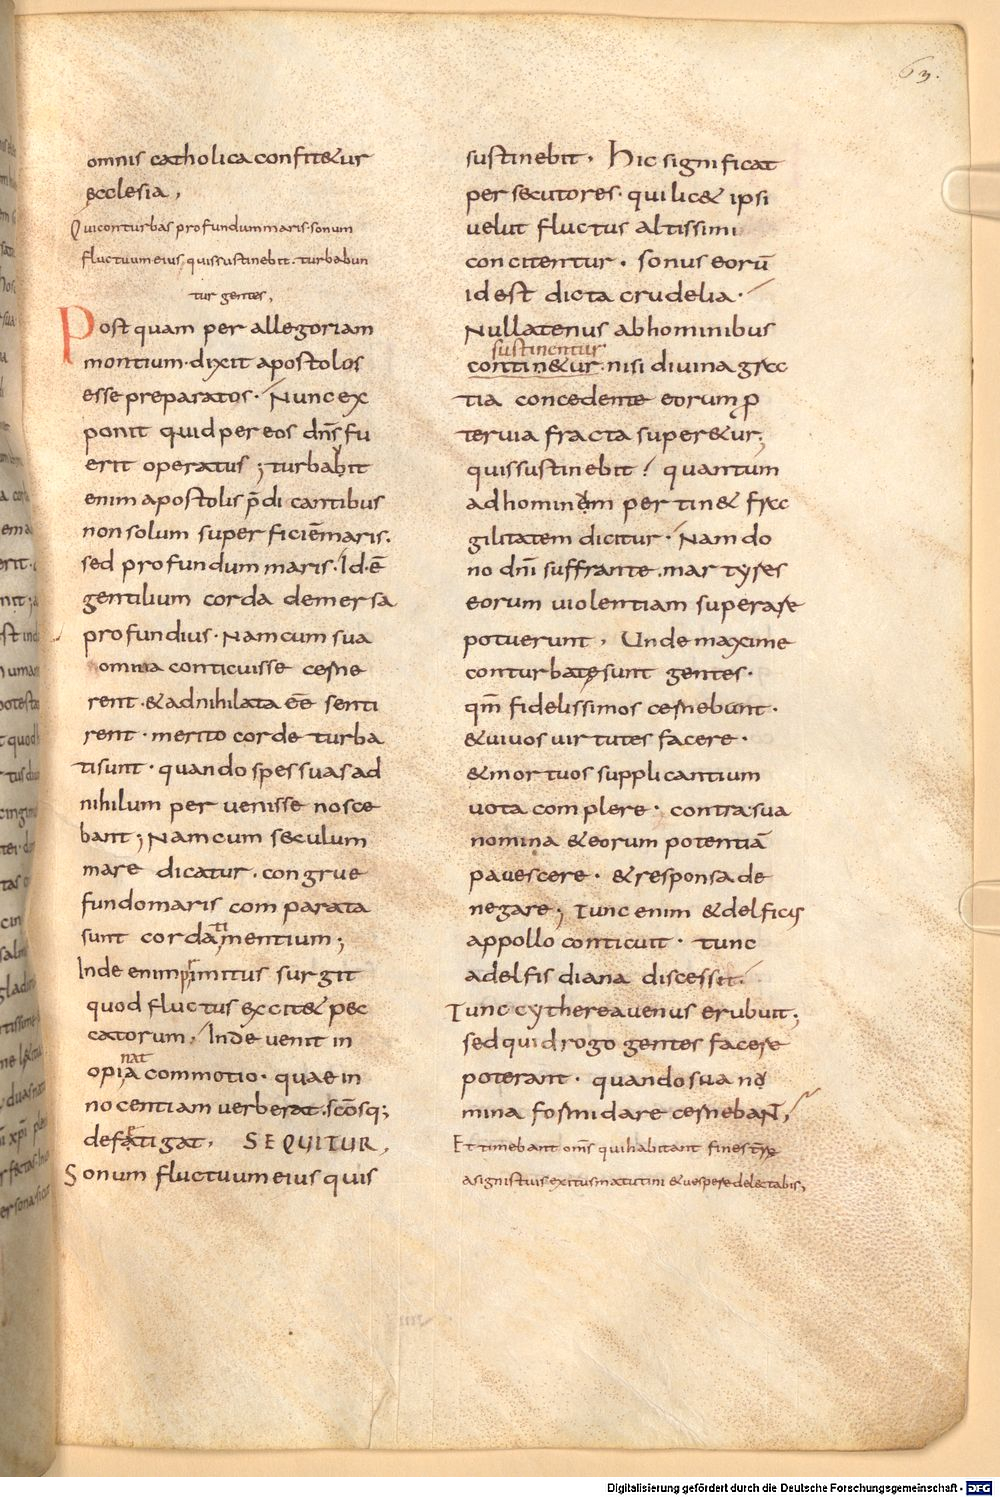 63.
omnis catholica confit&ur
ecclesia,
Qui conturbas profundum maris. sonum
fluctuum eius, quis sustinebit. turbabun
tur gentes,
Post quam per allegoriam
montium. dixit apostolos
esse preparatos. Nunc ex
ponit quid per eos dn̄s fu
erit operatus; turbabit
enim apostolis p̄dicantibus
non solum superficiē maris.
sed profundum maris. Id. ē
gentilium corda demersa
profundius. Nam cum sua
omnia conticuisse cerne
rent. & adnihilata eē senti
rent. merito corde turba
ti sunt. quando spes suas ad
nihilum pervenisse nosce
bant; Nam cum seculum
mare dicatur. congrue
fundo maris comparata
sunt corda mentium;
Inde enim primitus surgit
quod fluctus excit& pec
catorum. Inde venit in
opinata commotio. quae in
nocentiam verberat. scōsq;
defatigat. SEQUITUR,
Sonum fluctuum eius quis
sustinebit. Hic significat
persecutores. qui lic& ipsi
uelut fluctus altissimi
concitentur. sonus eorū
id est dicta crudelia.
Nullatenus ab hominibus
sustinentur
contin&ur. nisi divina grac
tia concedente eorum p
teruia fracta super&ur;
quis sustinebit? quantum
ad hominem pertin& frac
gilitatem dicitur. Nam do
no dnī suffrante. martyres
eorum uiolentiam superare
potuerunt, Unde maxime
conturbate sunt gentes.
qm̄ fidelissimos cernebant.
& uiuos uirtutes facere.
& mortuos supplicantium
uota complere. contra sua
nomina & eorum potentiā
pauescere. & responsa de
negare; Tunc enim & delficus
appollo conticuit. tunc
adelfis diana discessit.
Tunc cytherea uenus erubuit;
sed quid rogo gentes facere
poterant. quando sua no
mina formidare cernebaNT,
Et timebant om̄s qui habitant fines t̄rę
a signis tuis exitus matutini & uespere delectabis;
Digitalisierung gefördert durch die Deutsche Forschungsgemeinschaft - DFG